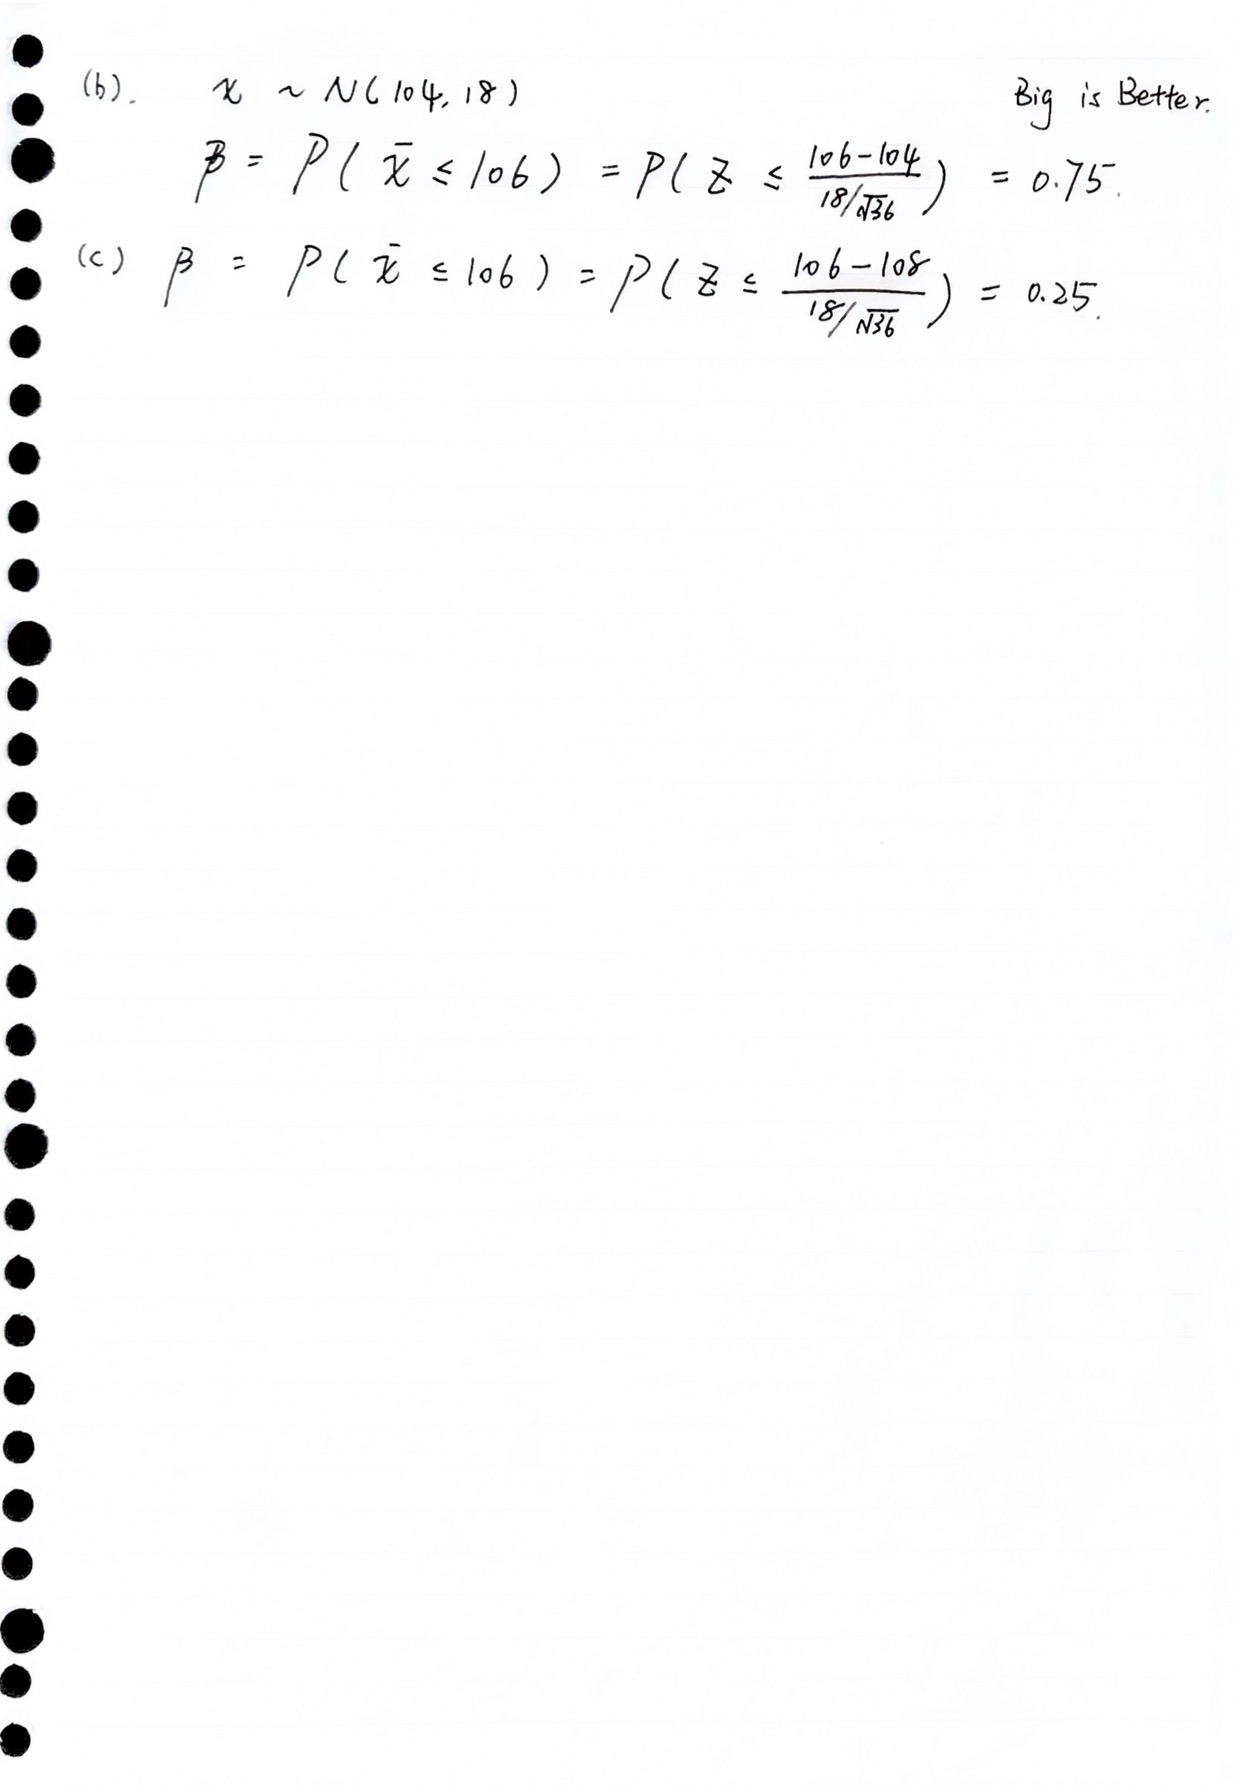 (b). x ~ N(104, 18) Big is Better.
β = P( x̄ ≤ 106 ) = P( Z ≤ (106-104)/(18/√36) ) = 0.75.
(c) β = P( x̄ ≤ 106 ) = P( Z ≤ (106-108)/(18/√36) ) = 0.25.